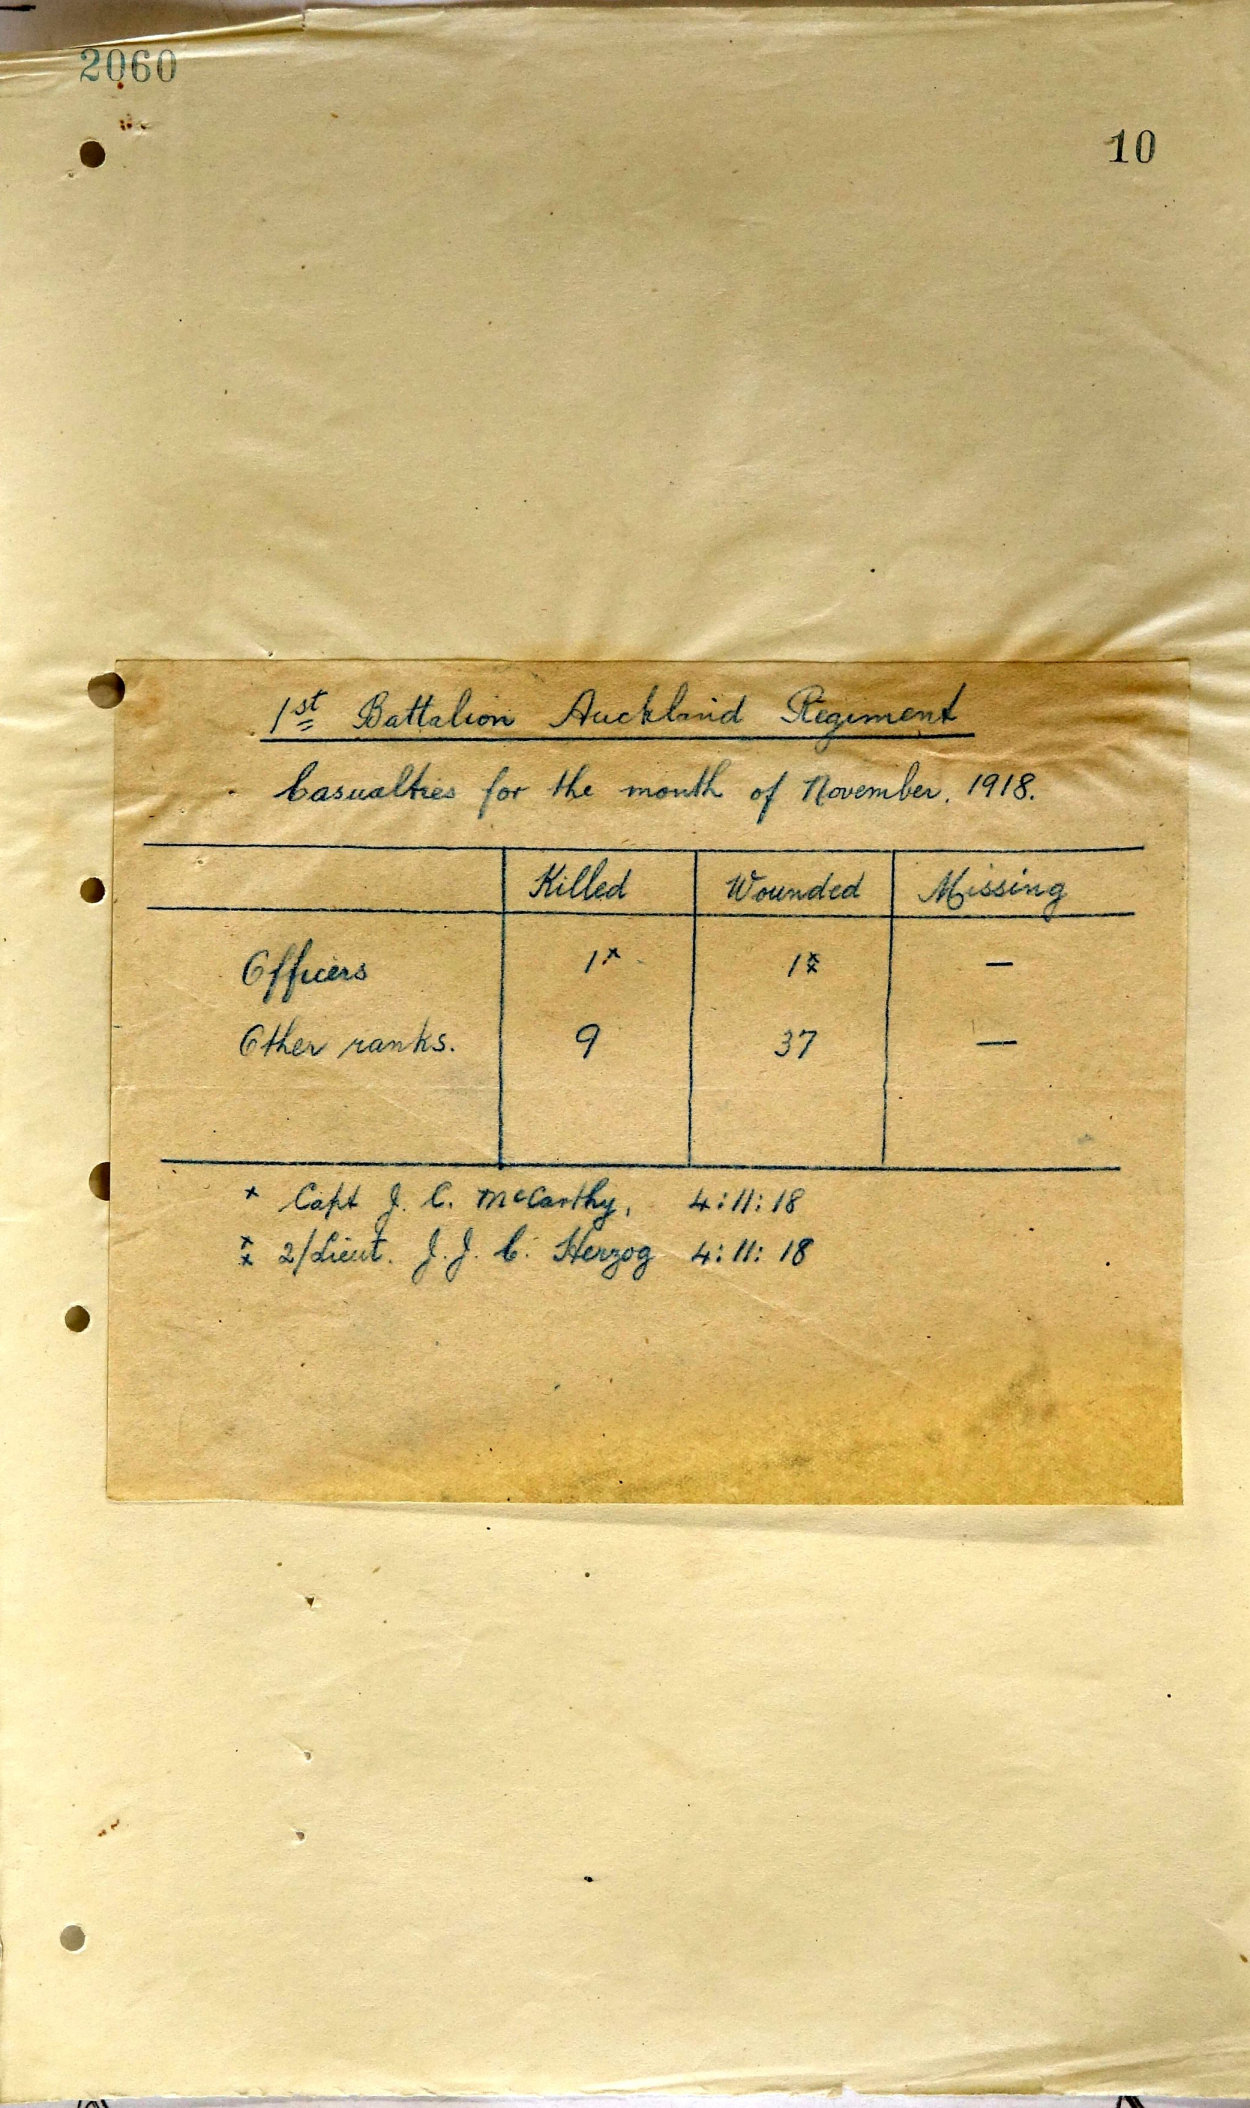 2060
10
1st Battalion Auckland Regiment
Casualties for the month of November, 1918.
Killed Wounded Missing
Officers 1x 1xx —
Other ranks. 9 37 —
x Capt J. C. McCarthy, 4:11:18
xx 2/Lieut. J. J. C. Herzog 4:11:18